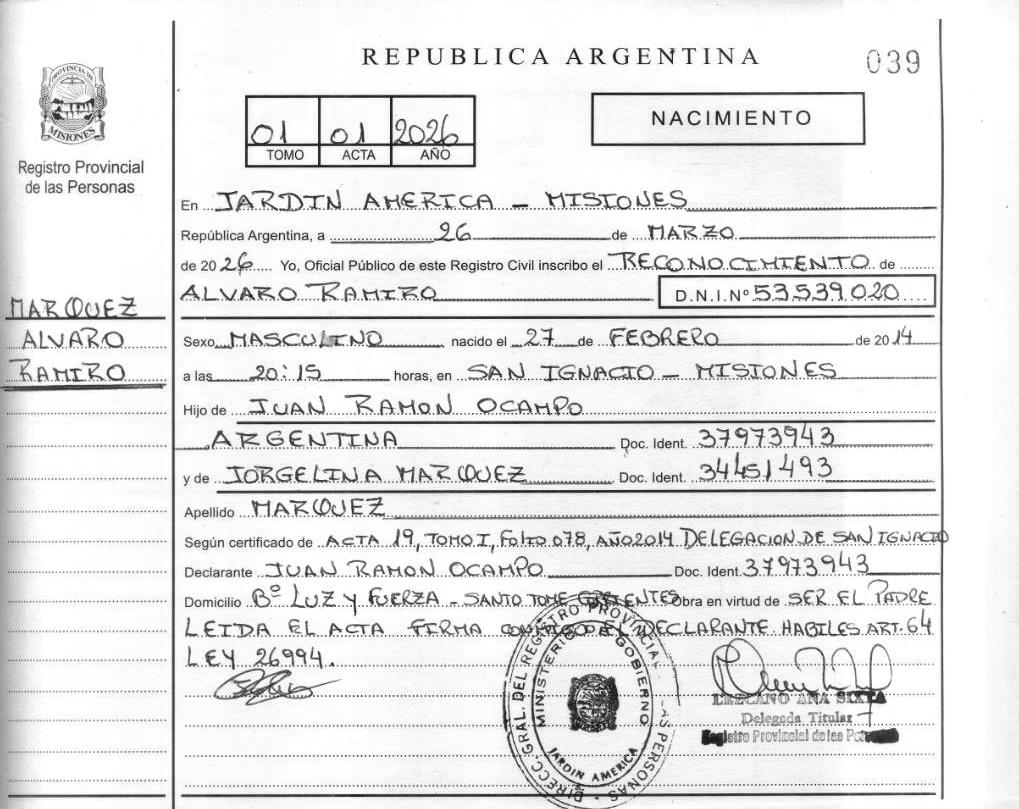 REPUBLICA ARGENTINA
039
PROVINCIA DE
MISIONES
Registro Provincial
de las Personas
01 01 2026
TOMO ACTA AÑO
NACIMIENTO
En JARDIN AMERICA - MISIONES
República Argentina, a 26 de MARZO
de 2026 Yo, Oficial Público de este Registro Civil inscribo el RECONOCIMIENTO de
ALVARO RAMIRO D.N.I.Nº 53.539.020
MARQUEZ
ALVARO
RAMIRO
Sexo MASCULINO nacido el 27 de FEBRERO de 2014
a las 20:15 horas, en SAN IGNACIO - MISIONES
Hijo de JUAN RAMON OCAMPO
ARGENTINA Doc. Ident. 37973943
y de JORGELINA MARQUEZ Doc. Ident. 34451493
Apellido MARQUEZ
Según certificado de ACTA 19, TOMO I, FOLIO 078, AÑO 2014 DELEGACION DE SAN IGNACIO
Declarante JUAN RAMON OCAMPO Doc. Ident. 37973943
Domicilio Bº LUZ Y FUERZA - SANTO TOME Obra en virtud de SER EL PADRE
LEIDA EL ACTA FIRMA CONMIGO EL DECLARANTE HABILES ART. 64
LEY 26994.
DIRECC. GRAL. DEL REGISTRO PROVINCIAL LAS PERSONAS
MINISTERIO GOBIERNO
JARDIN AMERICA
LEZCANO ANA SIXTA
Delegada Titular
Registro Provincial de las